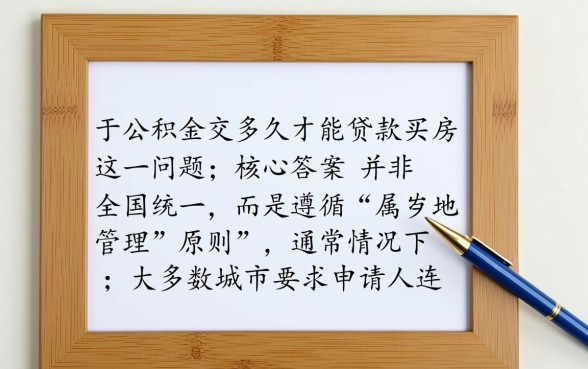 于公积金交多久才能贷款买房
这一问题；核心答案 并非
全国统一，而是遵循“属岁地
管理”原则”，通常情况下
；大多数城市要求申请人连